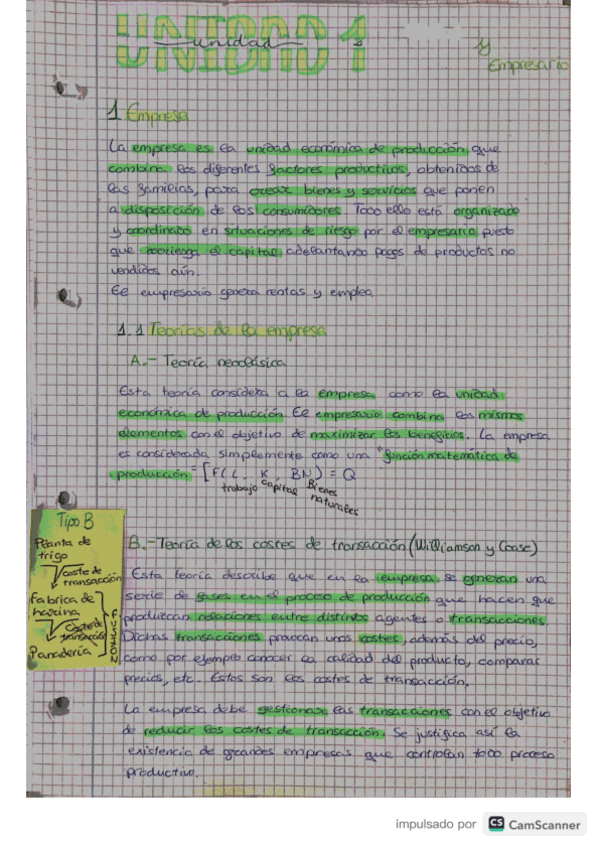 UNIDAD 1
unidad
y
Empresario
1 Empresa
La empresa es la unidad económica de producción que
combina los diferentes factores productivos, obtenidos de
las familias, para crear bienes y servicios que ponen
a disposición de los consumidores. Todo ello está organizado
y coordinado en situaciones de riesgo por el empresario puesto
que arriesga el capital adelantando pagos de productos no
vendidos aún.
El empresario genera rentas y empleo.
1.1 Teorías de la empresa
A.- Teoría neoclásica
Esta teoría considera a la empresa como la unidad
económica de producción. El empresario combina los mismos
elementos con el objetivo de maximizar los beneficios. La empresa
es considerada simplemente como una "función matemática de
producción" = [F(L, K, BN) = Q
trabajo capital Bienes
naturales
Tipo B
Planta de
trigo
coste de
transacción
Fabrica de
harina
coste de
transacción
Panadería
FUSIONAR
B.- Teoría de los costes de transacción (Williamson y Coase)
Esta teoría describe que en la empresa se generan una
serie de fases en el proceso de producción que hacen que
produzcan relaciones entre distintos agentes o transacciones.
Dichas transacciones provocan unos costes, además del precio,
como por ejemplo conocer la calidad del producto, comparar
precios, etc. Estos son los costes de transacción.
La empresa debe gestionar las transacciones con el objetivo
de reducir los costes de transacción. Se justifica así la
existencia de grandes empresas que controlan todo proceso
productivo.
impulsado por CS CamScanner